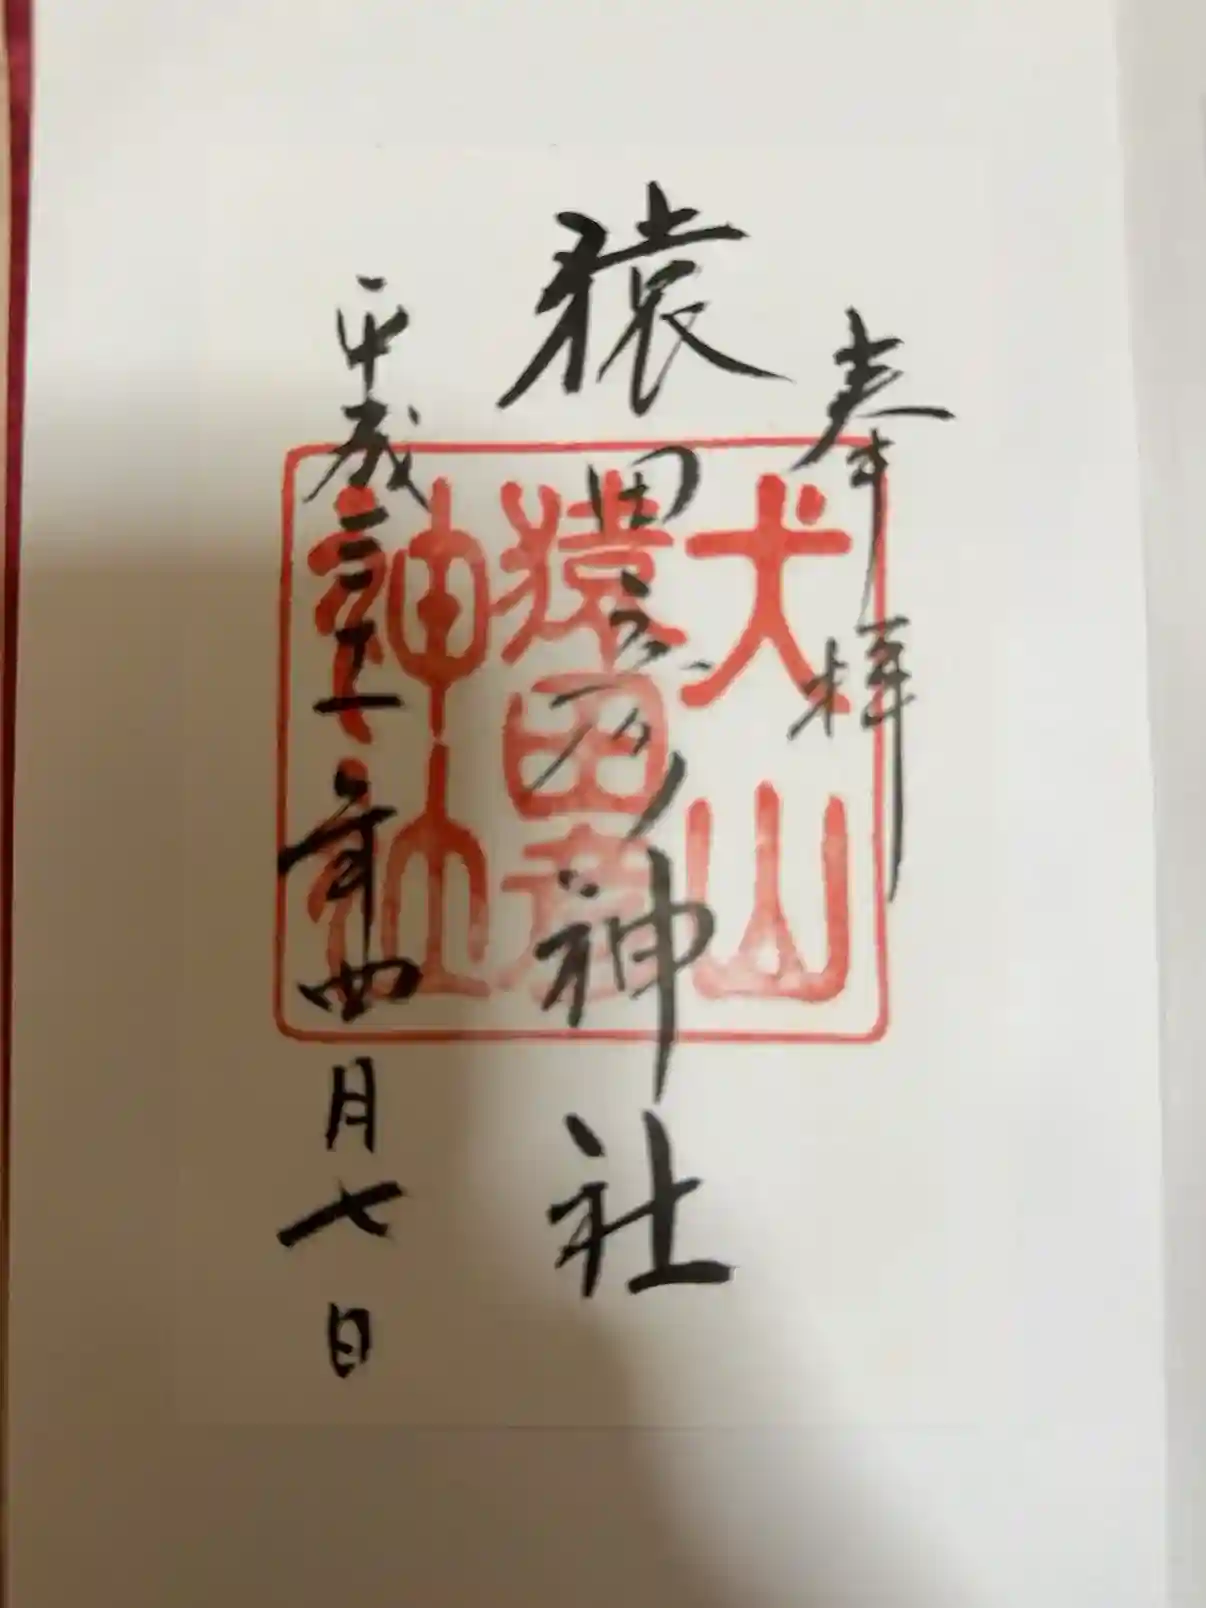 奉拝
猿田彦神社
平成三十一年四月七日
犬山
猿田彦
神社